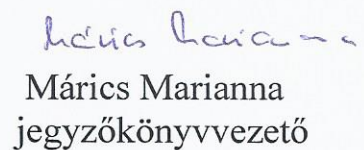 Márics Marianna
Márics Marianna
jegyzőkönyvvezető